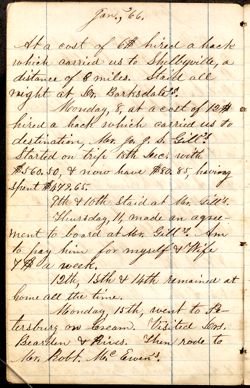 Jan., '66.
At a cost of 6$ hired a hack
which carried us to Shelbyville, a
distance of 8 miles. Staid all
night at Mr. Barksdale's.
Monday, 8, at a cost of 12$
hired a hack which carried us to
destination, Mr. Jo. J. S. Gill's.
Started on trip 18th Dec. with
$560.50, & now have $80.85, having
spent $479.65.
9th & 10th Staid at Mr. Gill's.
Thursday, 11, made an agree-
ment to board at Mr. Gill's. Am
to pay him for myself & Wife
7$ a week.
12th, 13th & 14th remained at
home all the time.
Monday, 15th, went to Pe-
tersburg on Visited Drs.
Bearden & Rives. Then rode to
Mr. Robt. McEwen's.